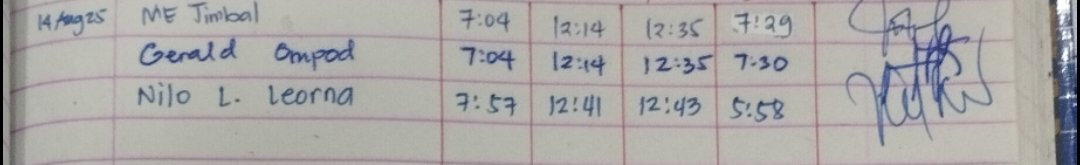 14 Aug 25 ME Jimbal 7:04 12:14 12:35 7:29
Gerald Ompod 7:04 12:14 12:35 7:30
Nilo L. Leorna 7:57 12:41 12:43 5:58